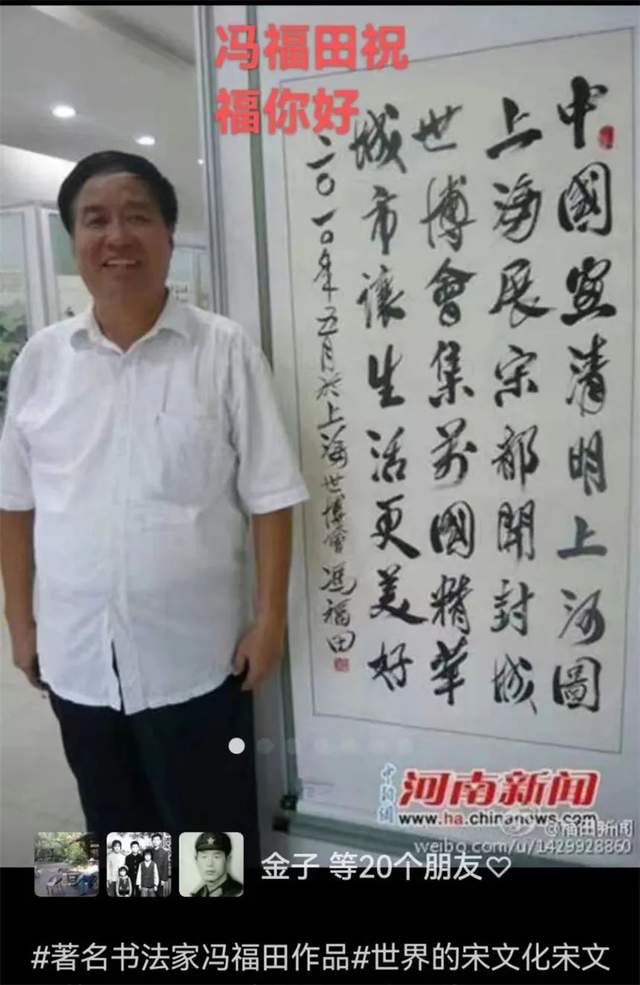 冯福田祝
福你好
中國清明上河圖
上海展宋都開封城
世博會集萬國精華
城市讓生活更美好
二〇一〇年五月於上海世博會 馮福田
中新網
河南新闻
www.ha.chinanews.com
@福田新闻
weibo.com/u/1429928860
金子 等20个朋友♡
#著名书法家冯福田作品#世界的宋文化宋文